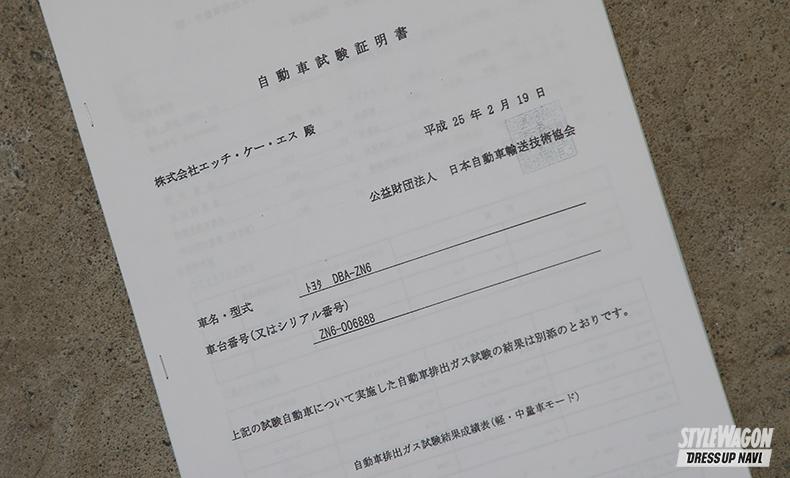 自動車試験証明書
平成 25 年 2 月 19 日
株式会社エッチ・ケー・エス 殿
公益財団法人 日本自動車輸送技術協会
車名・型式 トヨタ DBA-ZN6
車台番号(又はシリアル番号) ZN6-006888
上記の試験自動車について実施した自動車排出ガス試験の結果は別添のとおりです。
自動車排出ガス試験結果成績表(軽・中量車モード)
STYLEWAGON
DRESS UP NAVI